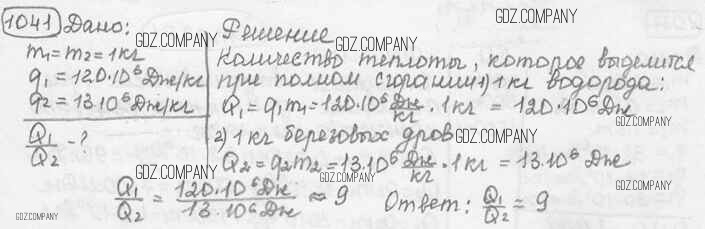 1041 Дано:
m₁=m₂=1кг
q₁=120·10⁶Дж/кг
q₂=13·10⁶Дж/кг
Q₁/Q₂ - ?
Решение
Количество теплоты, которое выделится
при полном сгорании: 1) 1кг водорода:
Q₁=q₁m₁=120·10⁶ Дж/кг · 1кг = 120·10⁶Дж
2) 1кг березовых дров
Q₂=q₂m₂=13·10⁶ Дж/кг · 1кг = 13·10⁶ Дж
Q₁/Q₂ = 120·10⁶Дж / 13·10⁶Дж ≈ 9
Ответ: Q₁/Q₂ ≈ 9
GDZ.COMPANY
GDZ.COMPANY
GDZ.COMPANY
GDZ.COMPANY
GDZ.COMPANY
GDZ.COMPANY
GDZ.COMPANY
GDZ.COMPANY
GDZ.COMPANY
GDZ.COMPANY
GDZ.COMPANY